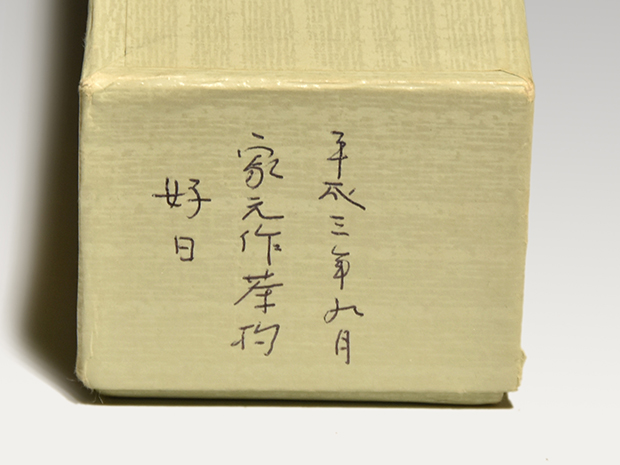 平成三年九月
家元作茶杓
好日